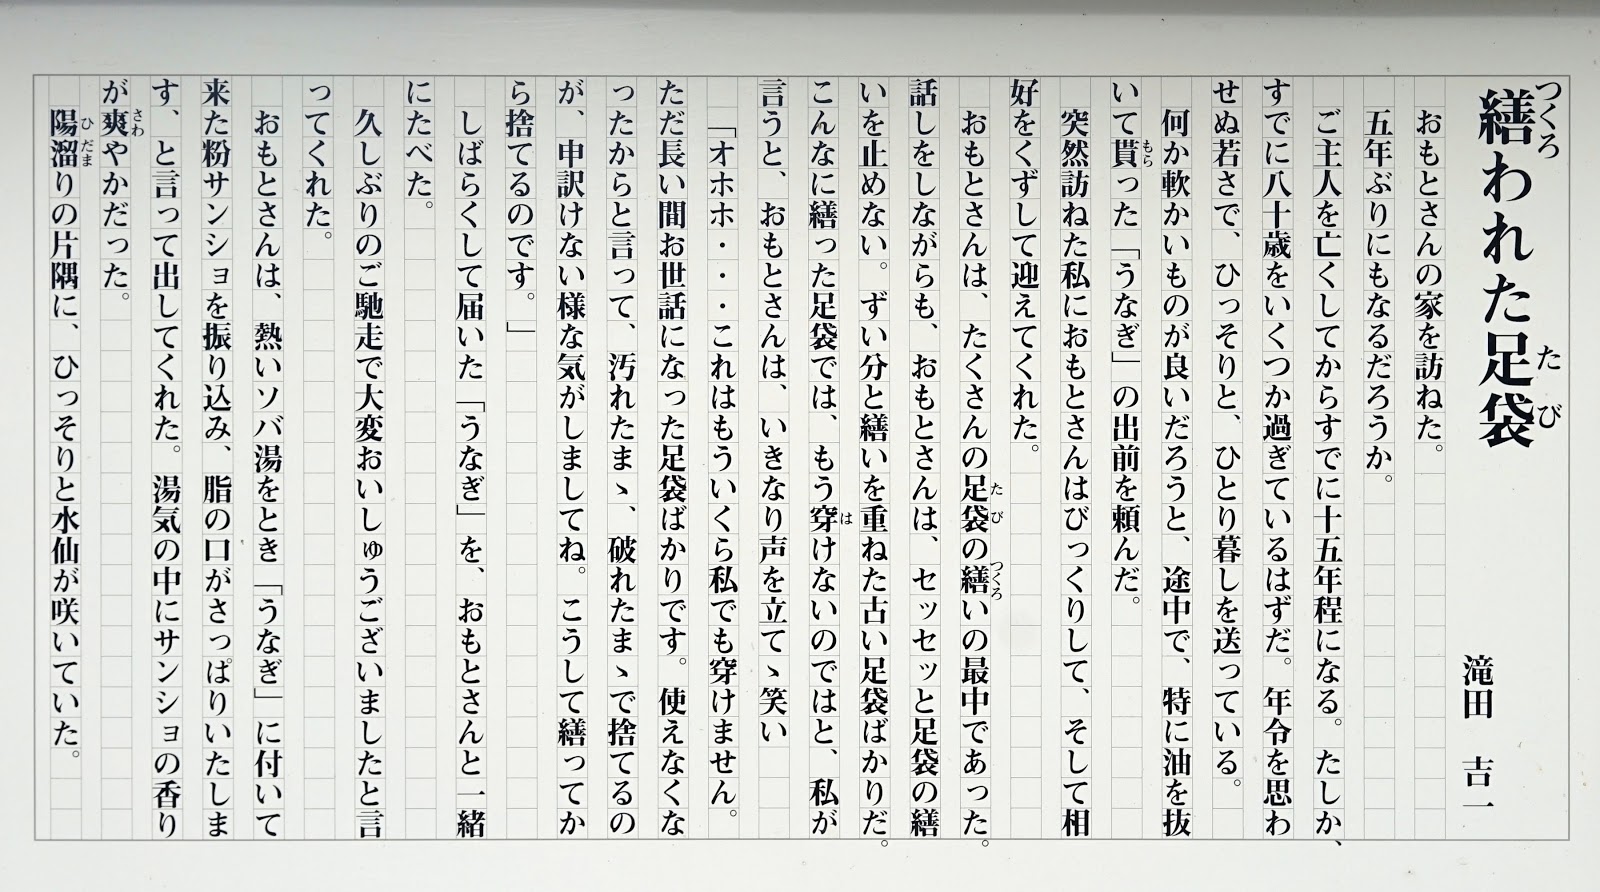 繕われた足袋
つくろ
たび
滝田　吉一
　おもとさんの家を訪ねた。
　五年ぶりにもなるだろうか。
　ご主人を亡くしてからすでに十五年程になる。たしか、
すでに八十歳をいくつか過ぎているはずだ。年令を思わ
せぬ若さで、ひっそりと、ひとり暮しを送っている。
　何か軟かいものが良いだろうと、途中で、特に油を抜
いて貰った「うなぎ」の出前を頼んだ。
もら
　突然訪ねた私におもとさんはびっくりして、そして相
好をくずして迎えてくれた。
　おもとさんは、たくさんの足袋の繕いの最中であった。
たび
つくろ
話しをしながらも、おもとさんは、セッセッと足袋の繕
いを止めない。ずい分と繕いを重ねた古い足袋ばかりだ。
こんなに繕った足袋では、もう穿けないのではと、私が
は
言うと、おもとさんは、いきなり声を立てゝ笑い
「オホホ・・・これはもういくら私でも穿けません。
ただ長い間お世話になった足袋ばかりです。使えなくな
ったからと言って、汚れたまゝ、破れたまゝで捨てるの
が、申訳けない様な気がしましてね。こうして繕ってか
ら捨てるのです。」
　しばらくして届いた「うなぎ」を、おもとさんと一緒
にたべた。
　久しぶりのご馳走で大変おいしゅうございましたと言
ってくれた。
　おもとさんは、熱いソバ湯をとき「うなぎ」に付いて
来た粉サンショを振り込み、脂の口がさっぱりいたしま
す、と言って出してくれた。湯気の中にサンショの香り
が爽やかだった。
さわ
　陽溜りの片隅に、ひっそりと水仙が咲いていた。
ひだま